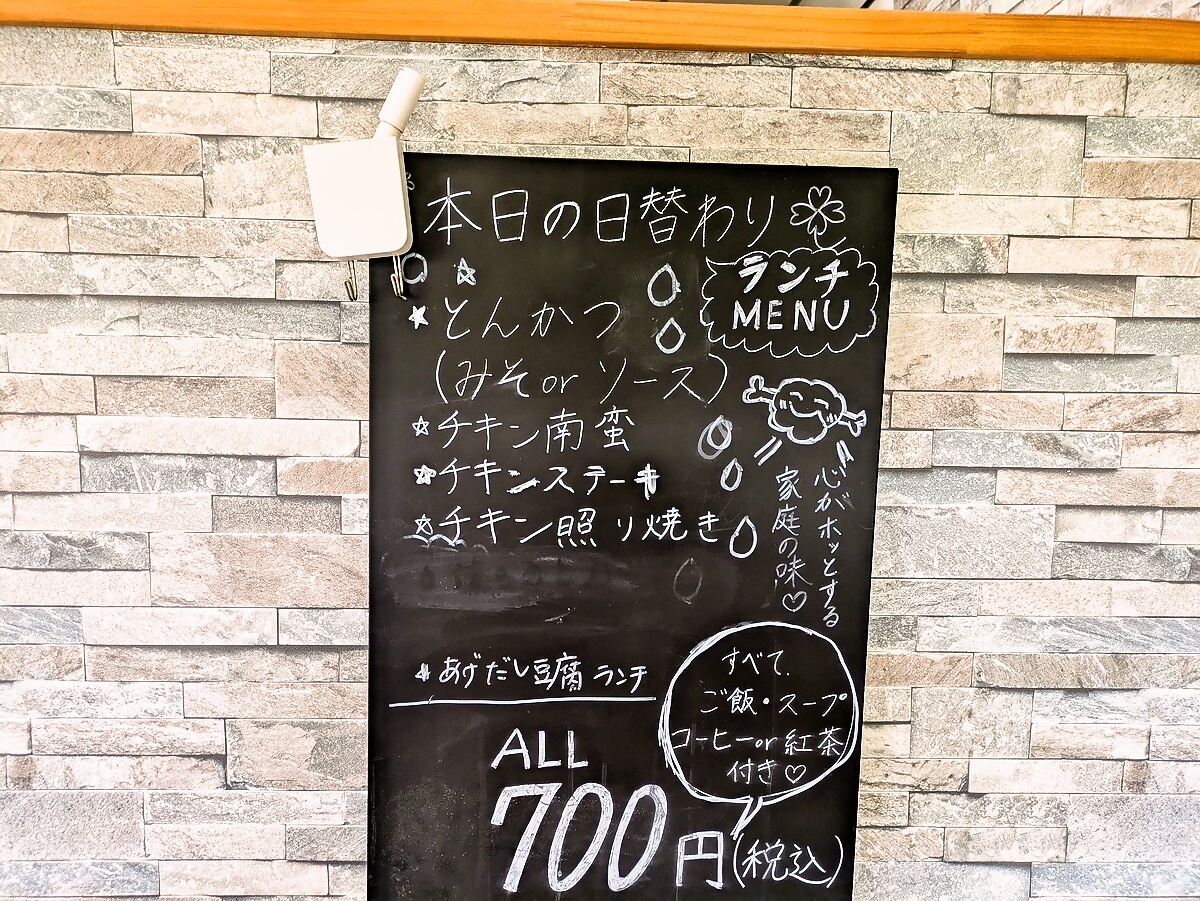 本日の日替わり
ランチ
MENU
とんかつ
(みそ or ソース)
チキン南蛮
チキンステーキ
チキン照り焼き
心がホッとする
家庭の味♡
あげだし豆腐ランチ
すべて、
ご飯・スープ
コーヒー or 紅茶
付き♡
ALL
700円(税込)